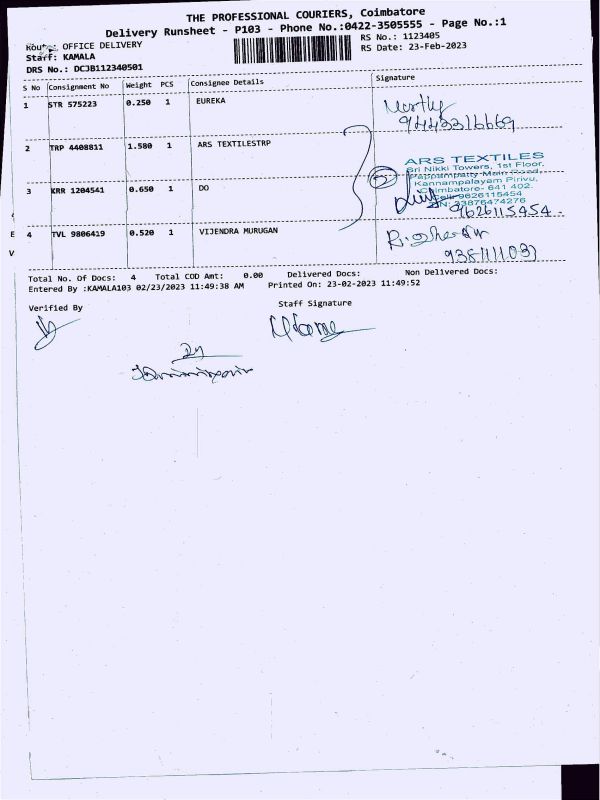 THE PROFESSIONAL COURIERS, Coimbatore
Delivery Runsheet - P103 - Phone No.:0422-3505555 - Page No.:1
Route: OFFICE DELIVERY
RS No.: 1123405
Staff: KAMALA
RS Date: 23-Feb-2023
DRS No.: DCJB112340501
S No Consignment No Weight PCS Consignee Details Signature
1 STR 575223 0.250 1 EUREKA
9443316669
2 TRP 4408811 1.580 1 ARS TEXTILESTRP
ARS TEXTILES
Sri Nikki Towers, 1st Floor,
Pappampatty Main Road,
Kannampalayam Pirivu,
Coimbatore- 641 402.
Cell: 9626115454
33876474276
3 KRR 1204541 0.650 1 DO
9626115454
E 4 TVL 9806419 0.520 1 VIJENDRA MURUGAN
V
Total No. Of Docs: 4 Total COD Amt: 0.00 Delivered Docs: Non Delivered Docs:
Entered By :KAMALA103 02/23/2023 11:49:38 AM Printed On: 23-02-2023 11:49:52
Verified By Staff Signature